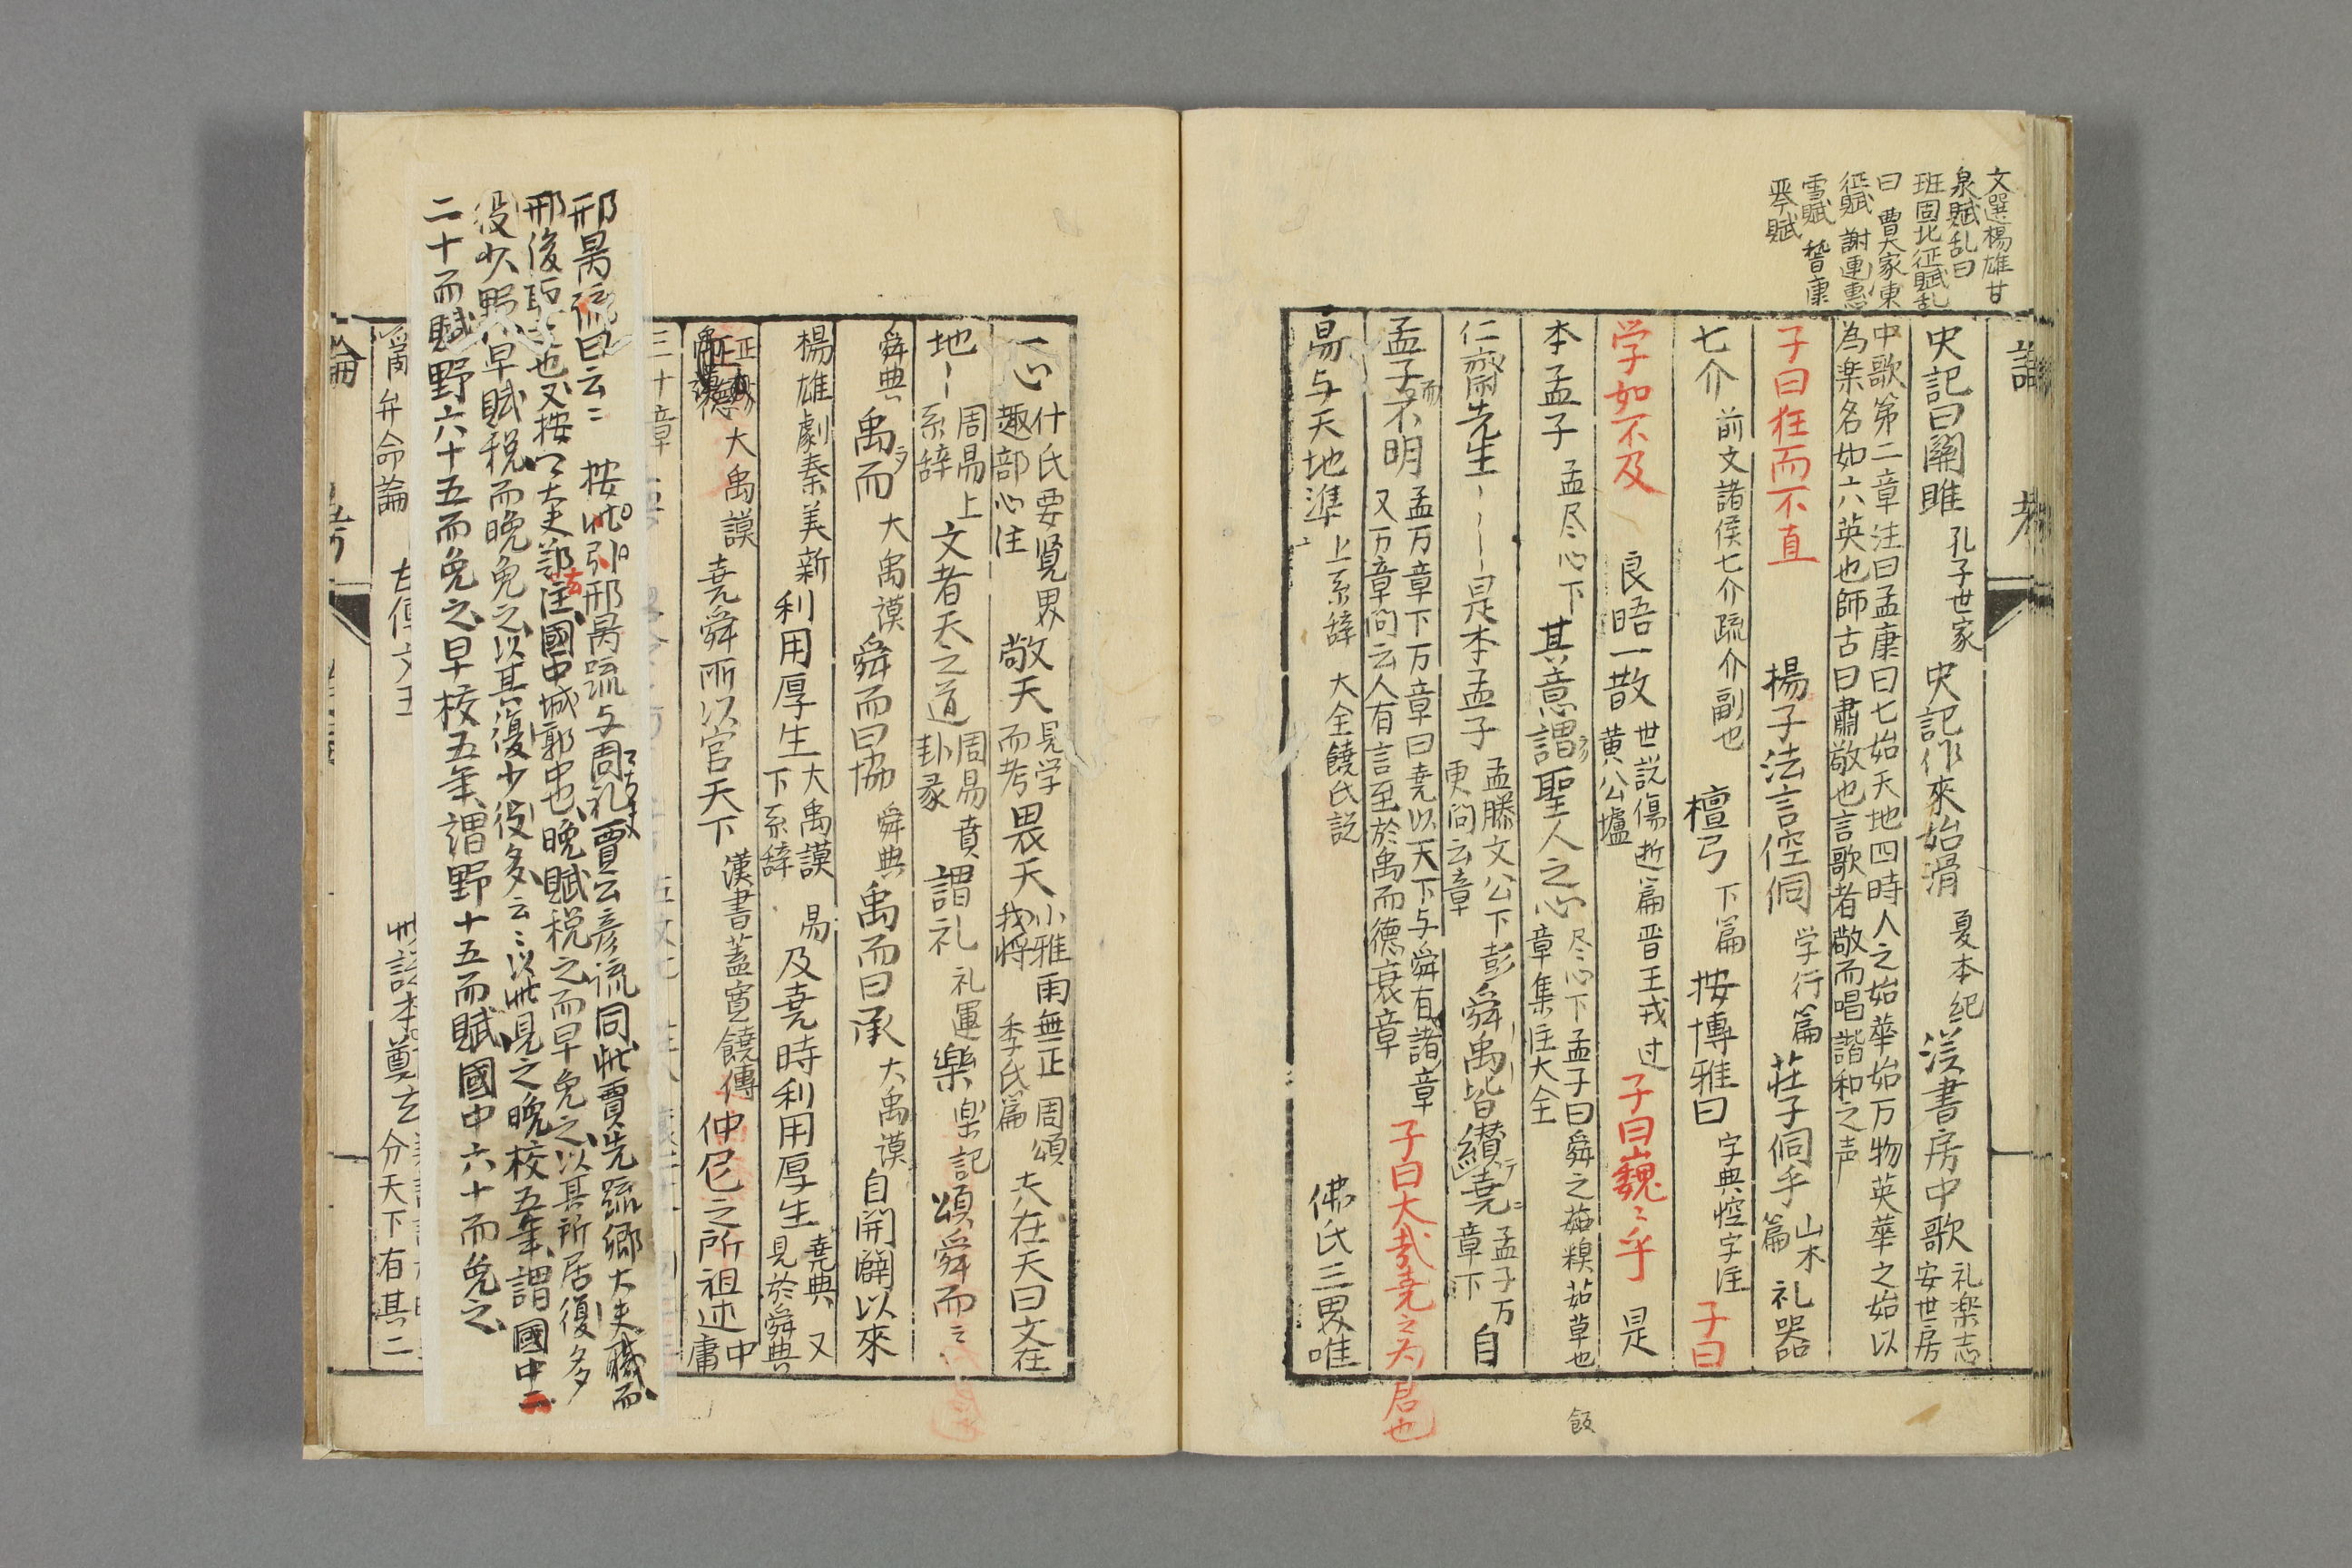 文選楊雄甘
泉賦乱曰
班固北征賦乱
曰 曹大家東
征賦 謝惠
雪賦 嵆康
琴賦
史記曰關雎 孔子世家 史記作來始滑 夏本紀 漢書房中歌 礼楽志 安世房
中歌第二章注曰孟康曰七始天地四時人之始華始万物英華之始以
為楽名如六英也師古曰肅敬也言歌者敬而唱諧和之声
子曰狂而不直 楊子法言倥侗 学行篇 荘子侗乎 山木篇 礼器
七介 前文諸侯七介疏介副也 檀弓 下篇 按博雅曰 字典悾字注 子曰
学如不及 良晤一散 世説傷逝篇晋王戎过 黄公壚 子曰巍〻乎 是
本孟子 孟尽心下 其意謂聖人之心 尽心下孟子曰舜之茹糗茹草也 章集注大全
仁齋先生 是本孟子 孟滕文公下彭 更问云章 舜禹皆纉尭 孟子万 章下 自
孟子而不明 孟万章下万章曰尭以天下与舜有諸章 又万章问云人有言至於禹而徳衰章 子曰大哉尭之为君也
易与天地準 上系辞 大全饒氏説 佛氏三界唯
一心 什氏要覧界 趣部心注 敬天 見学 而考 畏天 小雅雨無正 周頌 我将 季氏篇 夫在天曰文在
地 周易上 系辞 文者天之道 周易賁 卦彖 謂礼 礼運 樂 楽記 頌舜而
舜典 禹而 大禹謨 舜而曰協 舜典 禹而曰承 大禹謨 自開闢以來
楊雄劇秦美新 利用厚生 大禹謨 下系辞 易 及尭時利用厚生 尭典 又 見於舜典
大禹謨 尭舜所以官天下 漢書蓋寛饒傳 仲尼之所祖述 中庸
三十章
邢昺疏曰云〻 按此引邢昺疏与周礼賈云彦疏同此賈先疏郷大夫職而
邢後取也又按以大夫鄭注國中城郭中也晩賦税之而早免之以其所居復多
役少野早賦税而晩免之以其復少役多云〻以此見之晩校五年謂國中二
二十而賦野六十五而免之早校五年謂野十五而賦國中六十而免之
弁命論
分天下有其二